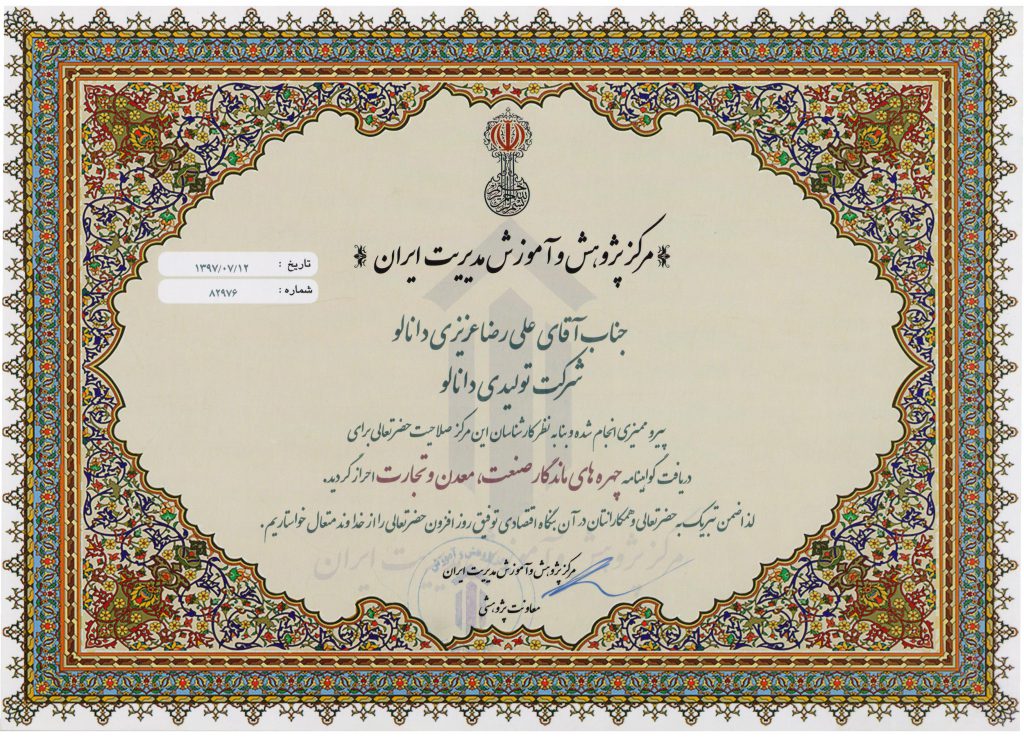 مرکز پژوهش و آموزش مدیریت ایران
تاریخ : ۱۳۹۷/۰۷/۱۲
شماره : ۸۲۹۷۶
جناب آقای علی رضا عزیزی دانالو
شرکت تولیدی دانالو
پیرو ممیزی انجام شده و بنا به نظر کارشناسان این مرکز صلاحیت حضرتعالی برای
دریافت گواهینامه چهره های ماندگار صنعت، معدن و تجارت احراز گردید.
لذا ضمن تبریک به حضرتعالی و همکارانتان در آن بنگاه اقتصادی توفیق روز افزون حضرتعالی را از خداوند متعال خواستاریم.
مرکز پژوهش و آموزش مدیریت ایران
مرکز پژوهش و آموزش مدیریت ایران
معاونت پژوهشی